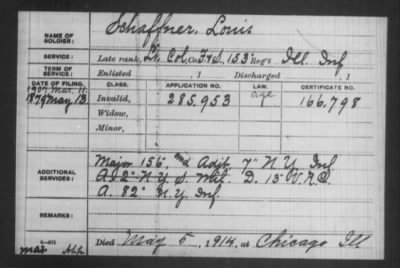 NAME OF SOLDIER: Schaffner, Louis
SERVICE: Late rank, Lt. Col, Co. F & S, 153" Reg't Ill. Inf
TERM OF SERVICE: Enlisted , 1 Discharged , 1
DATE OF FILING. CLASS. APPLICATION NO. LAW. CERTIFICATE NO.
1907 Mar. 11 age
1879 May 13 Invalid, 285,953 166,798
Widow,
Minor,
ADDITIONAL SERVICES: Major 156" and Adjt 7" N.Y. Inf
A. 2" N.Y. S. Mil. D. 13" V.R.C.
A. 82" N.Y. Inf.
REMARKS:
Died May 5, 1914, at Chicago Ill